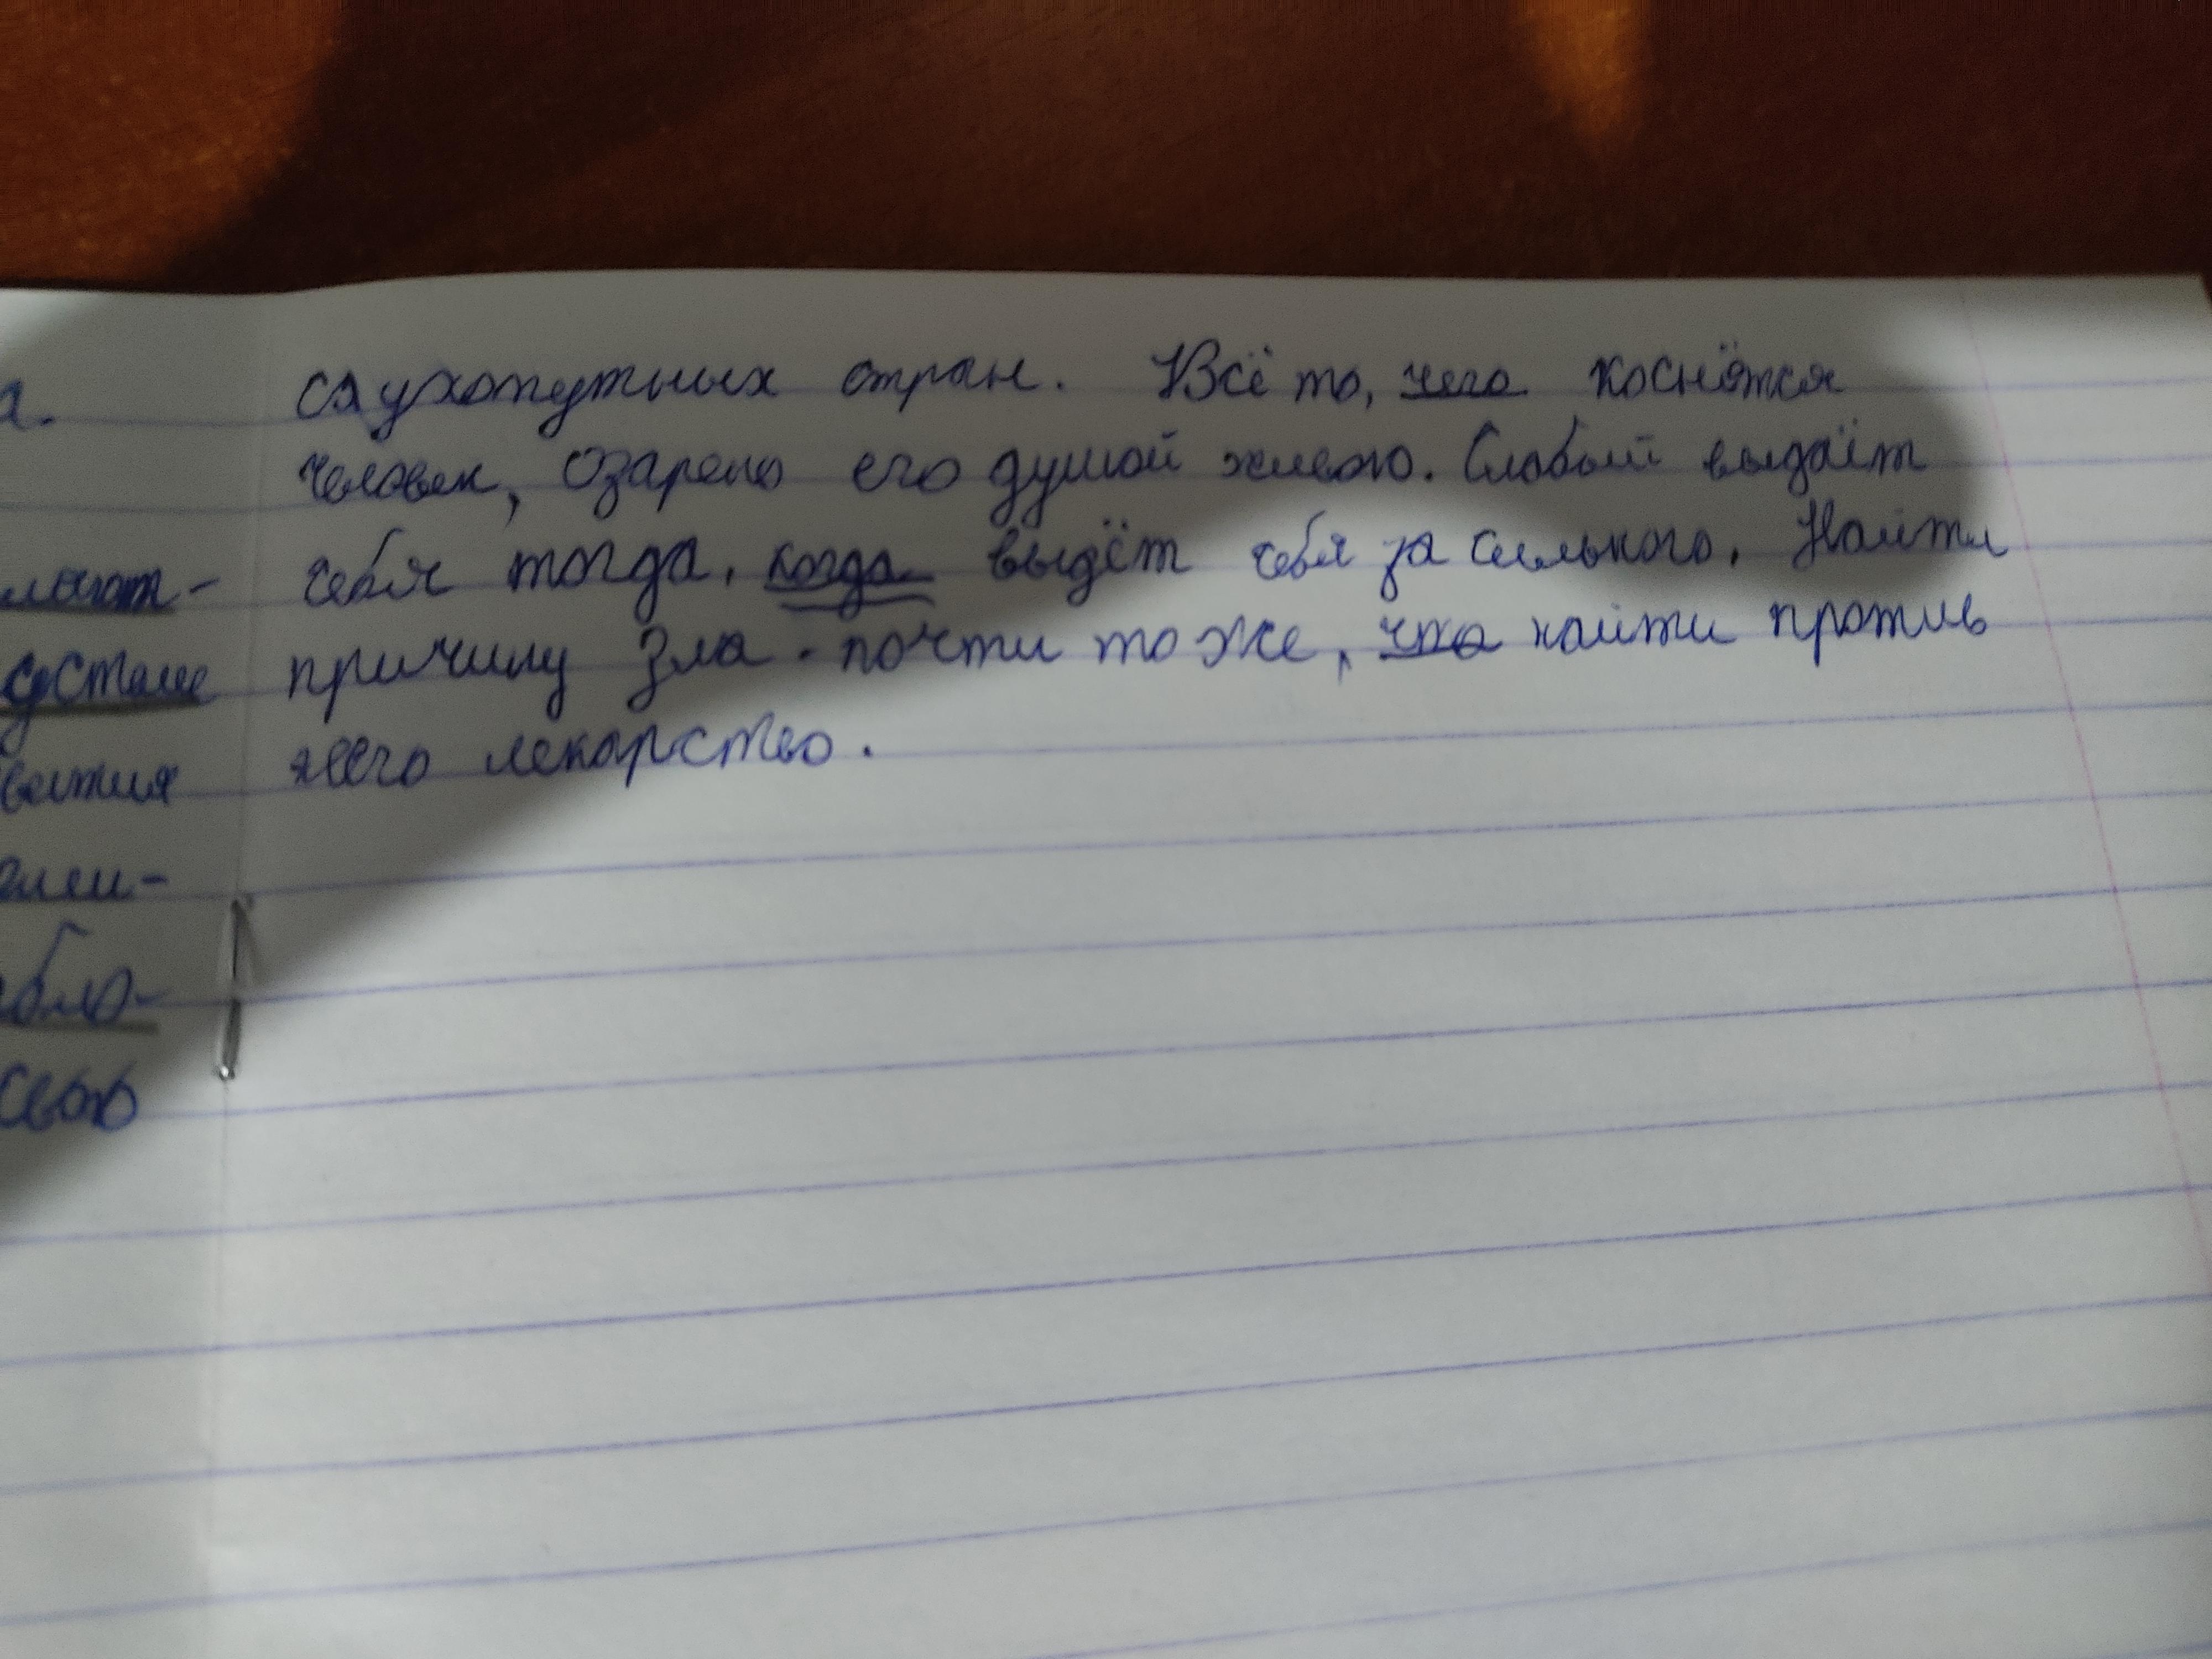 а.
лочат-
сустаще
вития
али-
обло-
сево
сухопутных стран. Всё то, чего коснётся
человек, озарено его душой живою. Слабый выдаёт
себя тогда, когда выдёт себя за сильного. Найти
причину зла - почти то же, что найти против
него лекарство.